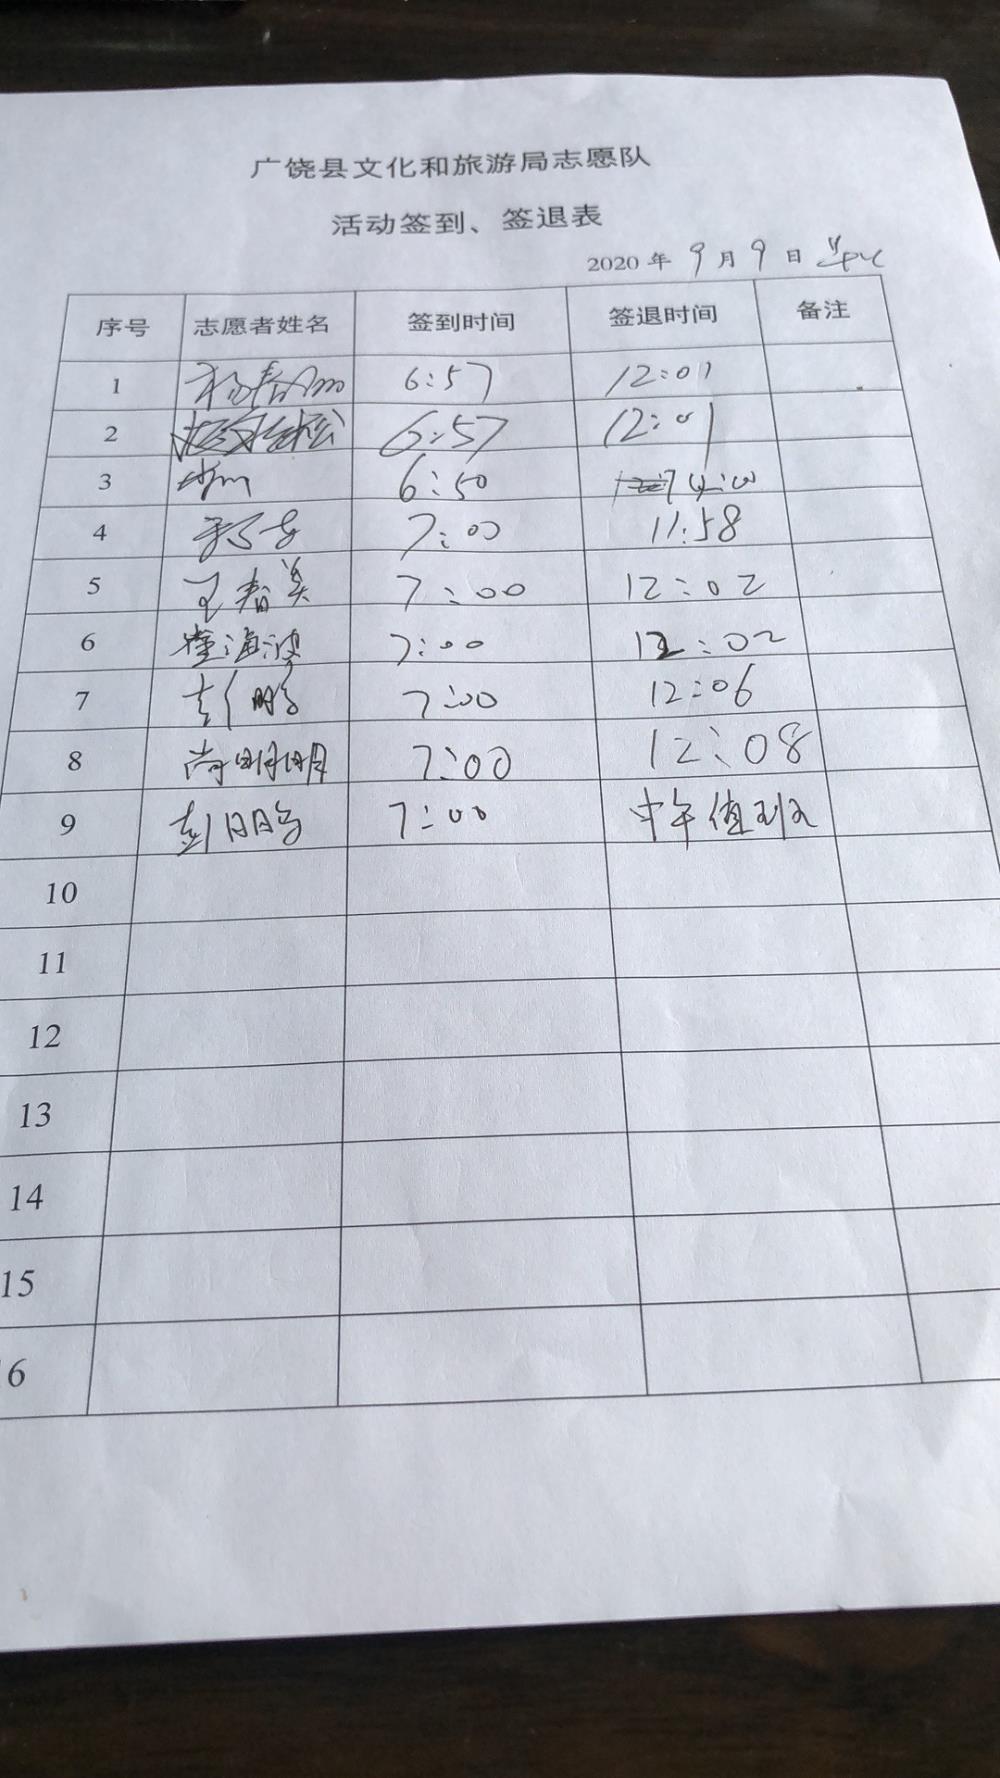 广饶县文化和旅游局志愿队
活动签到、签退表
2020 年 9 月 9 日
序号 志愿者姓名 签到时间 签退时间 备注
1 6:57 12:01
2 6:57 12:01
3 6:50
4 7:00 11:58
5 王春美 7:00 12:02
6 海波 7:00 12:02
7 彭鹏 7:00 12:06
8 尚明明 7:00 12:08
9 彭鹏 7:00 中午值班
10
11
12
13
14
15
6